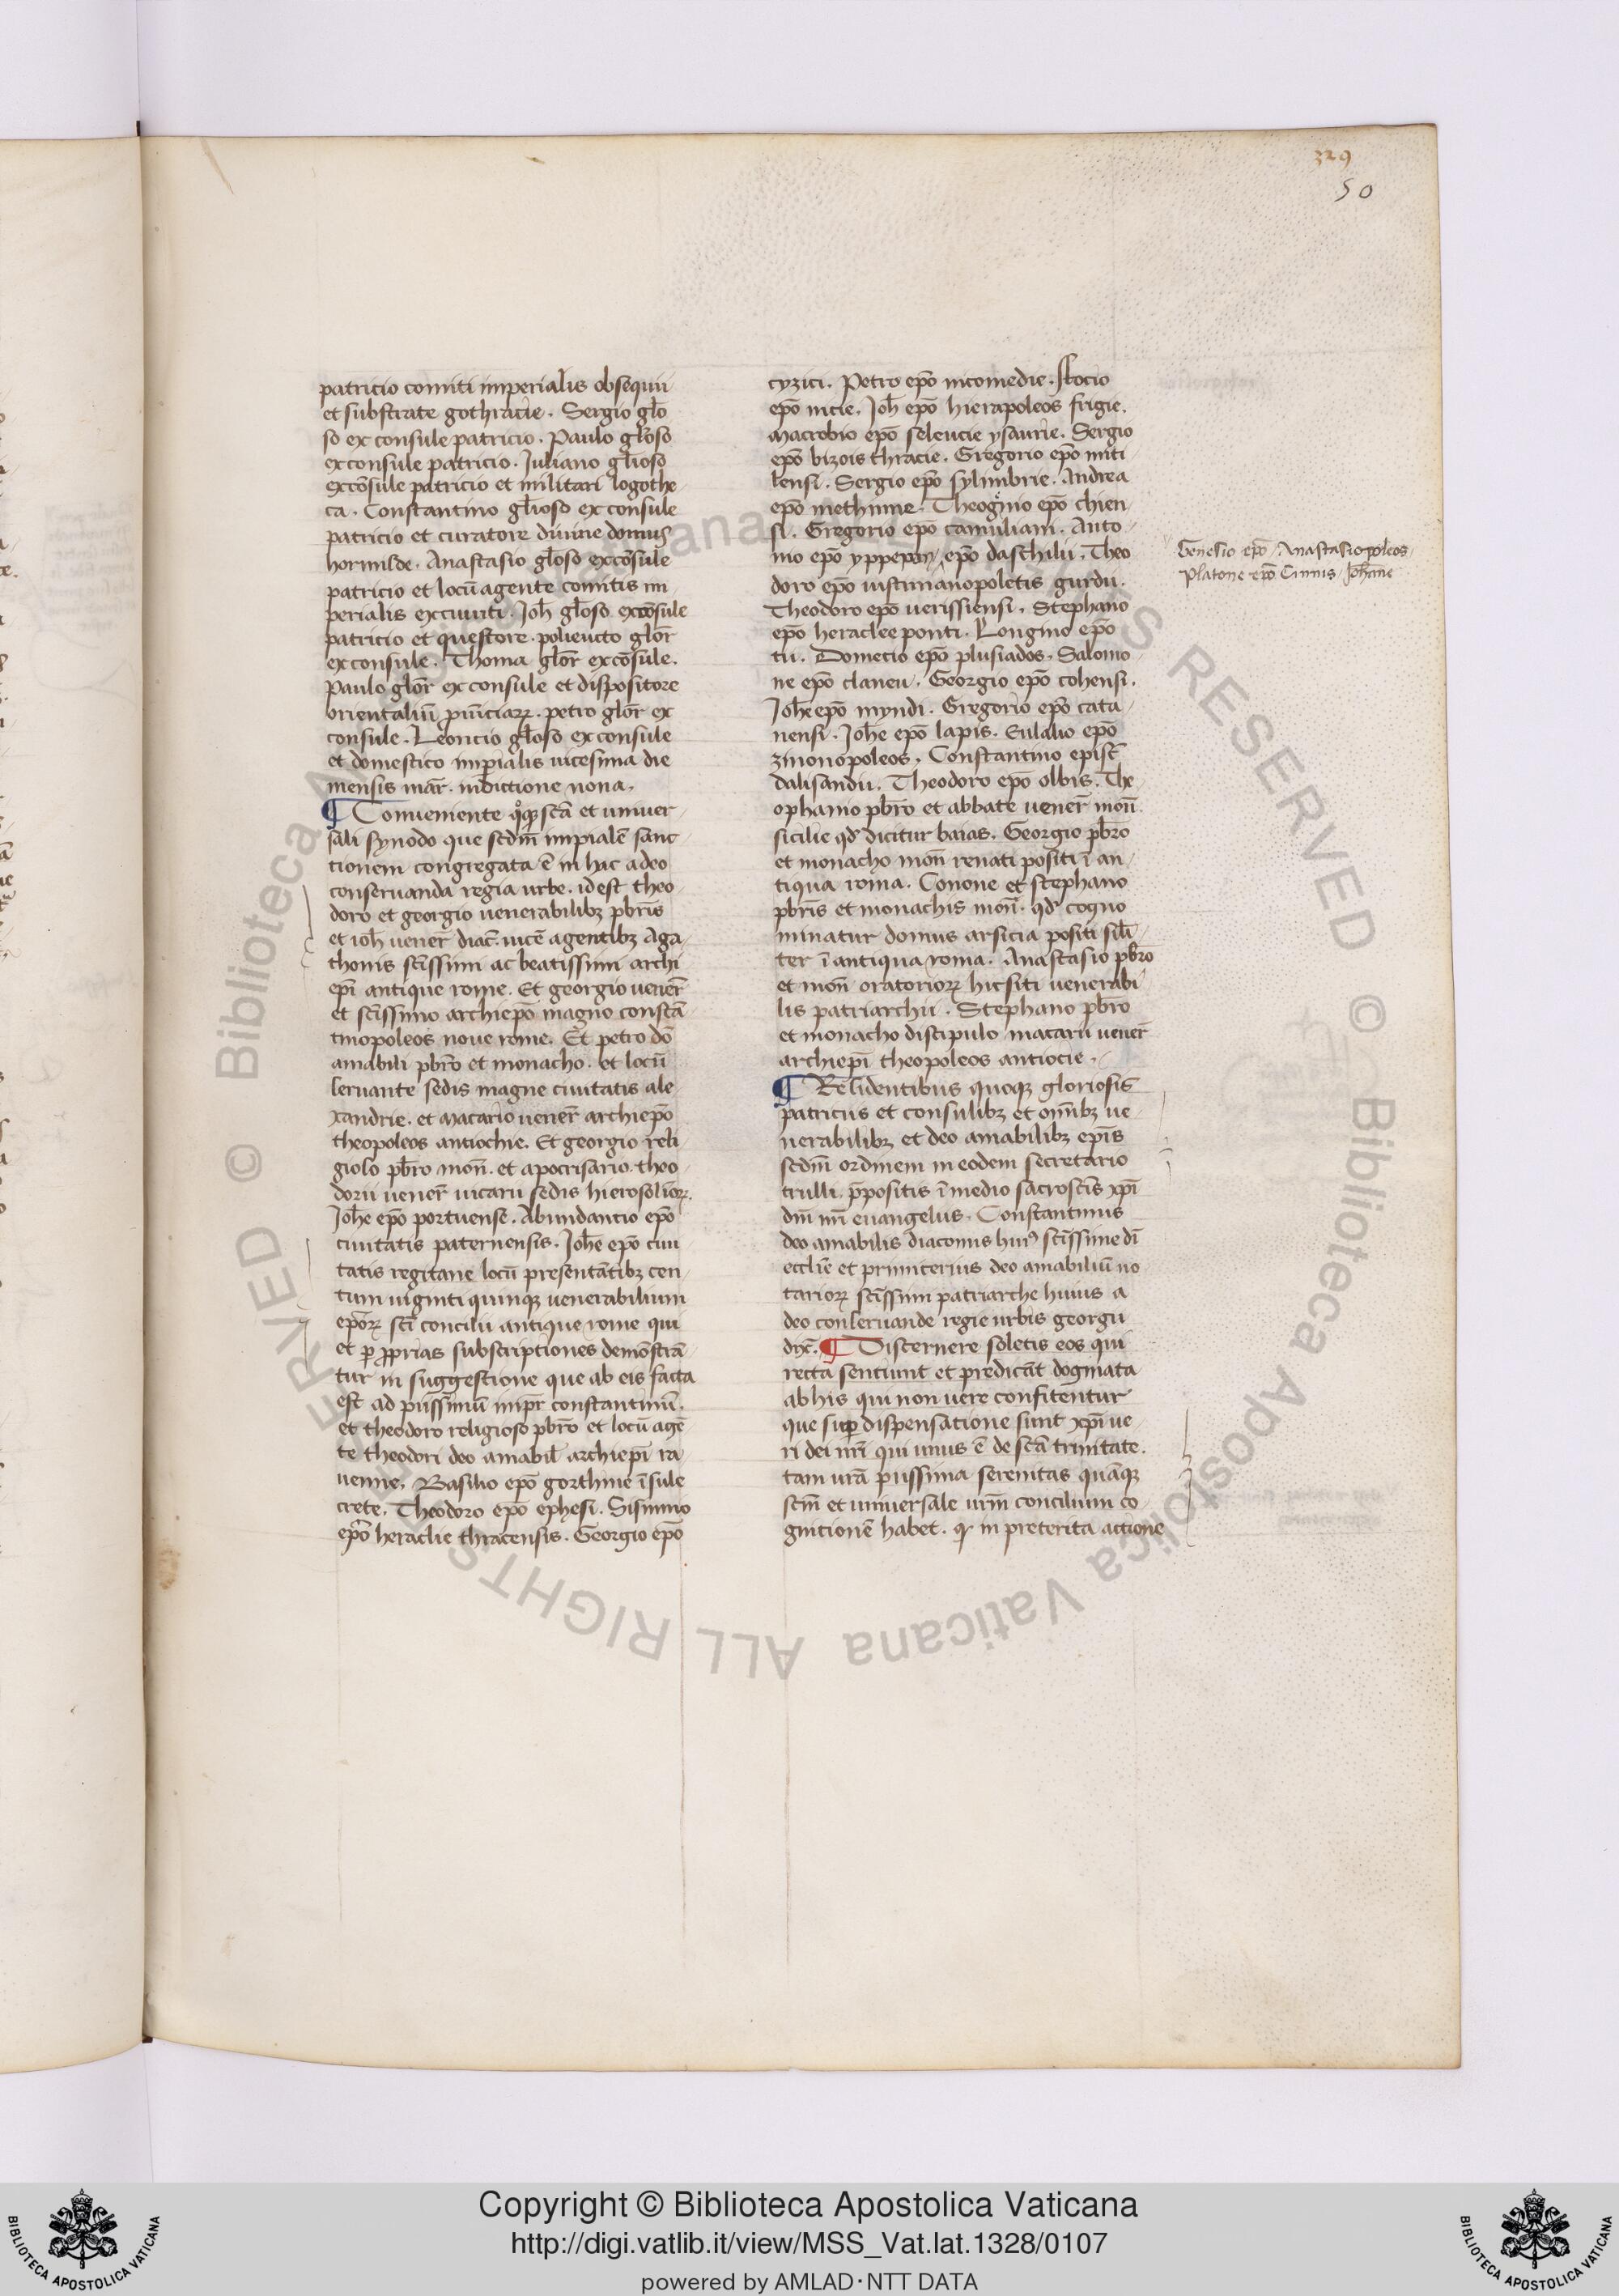 329
50
patricio comiti imperialis obsequii
et substrate gothracie. Sergio glo͞
so ex consule patricio. Paulo glo͞so
exconsule patricio. Iuliano gl͞ioso
exco͞sule patricio et militari logothe
ca. Constantino gl͞ioso ex consule
patricio et curatore diuine domus
hormisde. Anastasio glo͞so exco͞sule
patricio et locu͞ agente comitis im
perialis excuuiti. Ioh͞ glo͞so exco͞sule
patricio et questore. polieucto glor͞
exconsule. Thoma glor͞ exco͞sule.
Paulo glor͞ ex consule et dispositore
orientaliu͞ p͞uinciaꝝ. petro glor͞ ex
consule. Leoncio glo͞so ex consule
et domestico imp͞rialis uicesima die
mensis mar͞. indictione nona.
¶ Conueniente qͦqꝫ sc͞a et uniuer
sali synodo que scdm͞ imp͞iale͞ sanc
tionem congregata e͞ in hac a deo
conseruanda regia urbe. id est theo
doro et georgio uenerabilibꝫ pb͞ris
et ioh͞ uener͞ diac͞. uice͞ agentibꝫ Aga
thonis sc͞issimi ac beatissimi archi
ep͞i antique rome. Et georgio uener͞
et sc͞issimo archiep͞o magno consta͞
tinopoleos noue rome. Et petro do͞
amabili pb͞ro et monacho. et locu͞
seruante sedis magne ciuitatis ale
xandrie. et Macario uener͞ archiep͞o
theopoleos antiochie. Et georgio reli
gioso pb͞ro mon͞. et apocrisario. theo
dorii uener͞ uicarii sedis hierosolimoꝝ.
Ioh͞e ep͞o portuense. Abundancio ep͞o
ciuitatis paternensis. Ioh͞e ep͞o ciui
tatis regitane locu͞ presenta͞tibꝫ cen
tum uiginti quinqꝫ uenerabilium
ep͞oꝝ sc͞i concilii antique rome qui
et ꝑ ꝓprias subscriptiones demo͞stra͞
tur in suggestione que ab eis facta
est ad piissimu͞ impr͞ constantinu͞.
et theodoro religioso pb͞ro et locu͞ age͞
te theodori deo amabil͞ archiep͞i ra
uenne. Basilio ep͞o gorthine i͞sule
crete. Theodoro ep͞o ephesi. Sisinnio
ep͞o heraclie thracensis. Georgio ep͞o
cyzici. Petro ep͞o nicomedie. focio
ep͞o nicie. Ioh͞ ep͞o hierapoleos frigie.
Macrobio ep͞o seleucie ysaurie. Sergio
ep͞o bizois thracie. Gregorio ep͞o miti
lensi. Sergio ep͞o sylimbrie. Andrea
ep͞o methimne. Theognio ep͞o chien
si. Gregorio ep͞o camuliani. Anto
nio ep͞o yppepon, ep͞o daschilii. Theo
Genesio ep͞o Anastasiopoleos
Platone ep͞o Cinnis Joha͞ne
doro ep͞o iustinianopoletis gurdu.
Theodoro ep͞o uerissiensi. Stephano
ep͞o heraclee ponti. Longino ep͞o
tii. Domecio ep͞o plusiados. Salomo
ne ep͞o claneu. Georgio ep͞o cohensi.
Ioh͞e ep͞o myndi. Gregorio ep͞o cata
nensi. Ioh͞e ep͞o lapis. Eulalio ep͞o
zinonopoleos. Constantino episc͞
dalisandii. Theodoro ep͞o olbis. The
ophanio pb͞ro et abbate uener͞ mon͞.
sicilie qd͞ dicitur baias. Georgio pb͞ro
et monacho mon͞ renati positi i͞ an
tiqua roma. Conone et stephano
pb͞ris et monachis mon͞. qd͞ cogno
minatur domus arsicia positi sil͞i
ter i͞ antiqua roma. Anastasio pb͞ro
et mon͞ oratorioꝝ hic siti uenerabi
lis patriarchii. Stephano pb͞ro
et monacho discipulo macarii uener͞
archiep͞i theopoleos antiocie.
¶ Residentibus quoqꝫ gloriosis
patriciis et consulibꝫ et om͞ibꝫ ue
nerabilibꝫ et deo amabilibꝫ ep͞is
scdm͞ ordinem in eodem secretario
trulli. p͞positis i͞ medio sacrosc͞is xp͞i
dn͞i nr͞i euangeliis. Constantinus
deo amabilis diaconus huiꝰ sc͞issime di͞
eccl͞ie et primicerius deo amabiliu͞ no
tarioꝝ sc͞issimi patriarche huius a
deo conseruande regie urbis georgii
dix͞. ¶ Discernere soletis eos qui
recta sentiunt et predica͞t dogmata
ab his qui non uere confitentur
que suꝑ dispensatione sunt xp͞i ue
ri dei nr͞i qui unus e͞ de sc͞a trinitate.
tam ur͞a piissima serenitas qua͞qꝫ
sc͞m et uniuersale ur͞m concilium co
gnitione͞ habet. qꝛ in preterita actione
Copyright © Biblioteca Apostolica Vaticana
http://digi.vatlib.it/view/MSS_Vat.lat.1328/0107
powered by AMLAD·NTT DATA
BIBLIOTECA APOSTOLICA VATICANA
BIBLIOTECA APOSTOLICA VATICANA
© Biblioteca Apostolica Vaticana ALL RIGHTS RESERVED